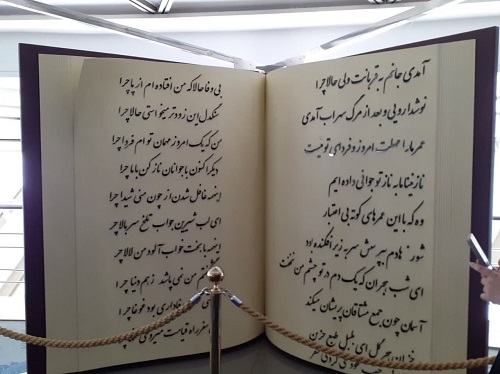 آمدی جانم به قربانت ولی حالا چرا
نوشدارویی و بعد از مرگ سهراب آمدی
عمر ما را مهلت امروز و فردای تو نیست
نازنینا ما به ناز تو جوانی داده ایم
وه که با این عمرهای کوته بی اعتبار
شور فرهادم بپرسش سر به زیر افکنده بود
ای شب هجران که یک دم در تو چشم من نخفت
آسمان چون جمع مشتاقان پریشان میکند
خزان هجر گل ای بلبل طبع حزین
خود نمی کردی سفر
بی وفا حالا که من افتاده ام از پا چرا
سنگدل این زودتر میخواستی حالا چرا
من که یک امروز مهمان تو ام فردا چرا
دیگر اکنون با جوانان ناز کن با ما چرا
اینهمه غافل شدن از چون منی شیدا چرا
ای لب شیرین جواب تلخ سربالا چرا
اینهمه با بخت خواب آلود من لالا چرا
من نمی پاشد ز هم دنیا چرا
وفاداری بود غوغا چرا
سفر راه قیامت میروی چرا